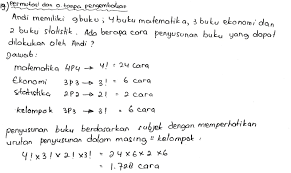 g) Permutasi dan a tanpa pengembalian
Andi memiliki 9 buku ; 4 buku matematika, 3 buku ekonomi dan
2 buku statistik. Ada berapa cara penyusunan buku yang dapat
dilakukan oleh Andi ?
Jawab :
matematika 4P4 → 4! = 24 cara
Ekonomi 3P3 → 3! = 6 cara
Statistika 2P2 → 2! = 2 cara
kelompok 3P3 → 3! = 6 cara
penyusunan buku berdasarkan subjek dengan memperhatikan
urutan penyusunan dalam masing² kelompok :
4! x 3! x 2! x 3! = 24 x 6 x 2 x 6
= 1.728 cara